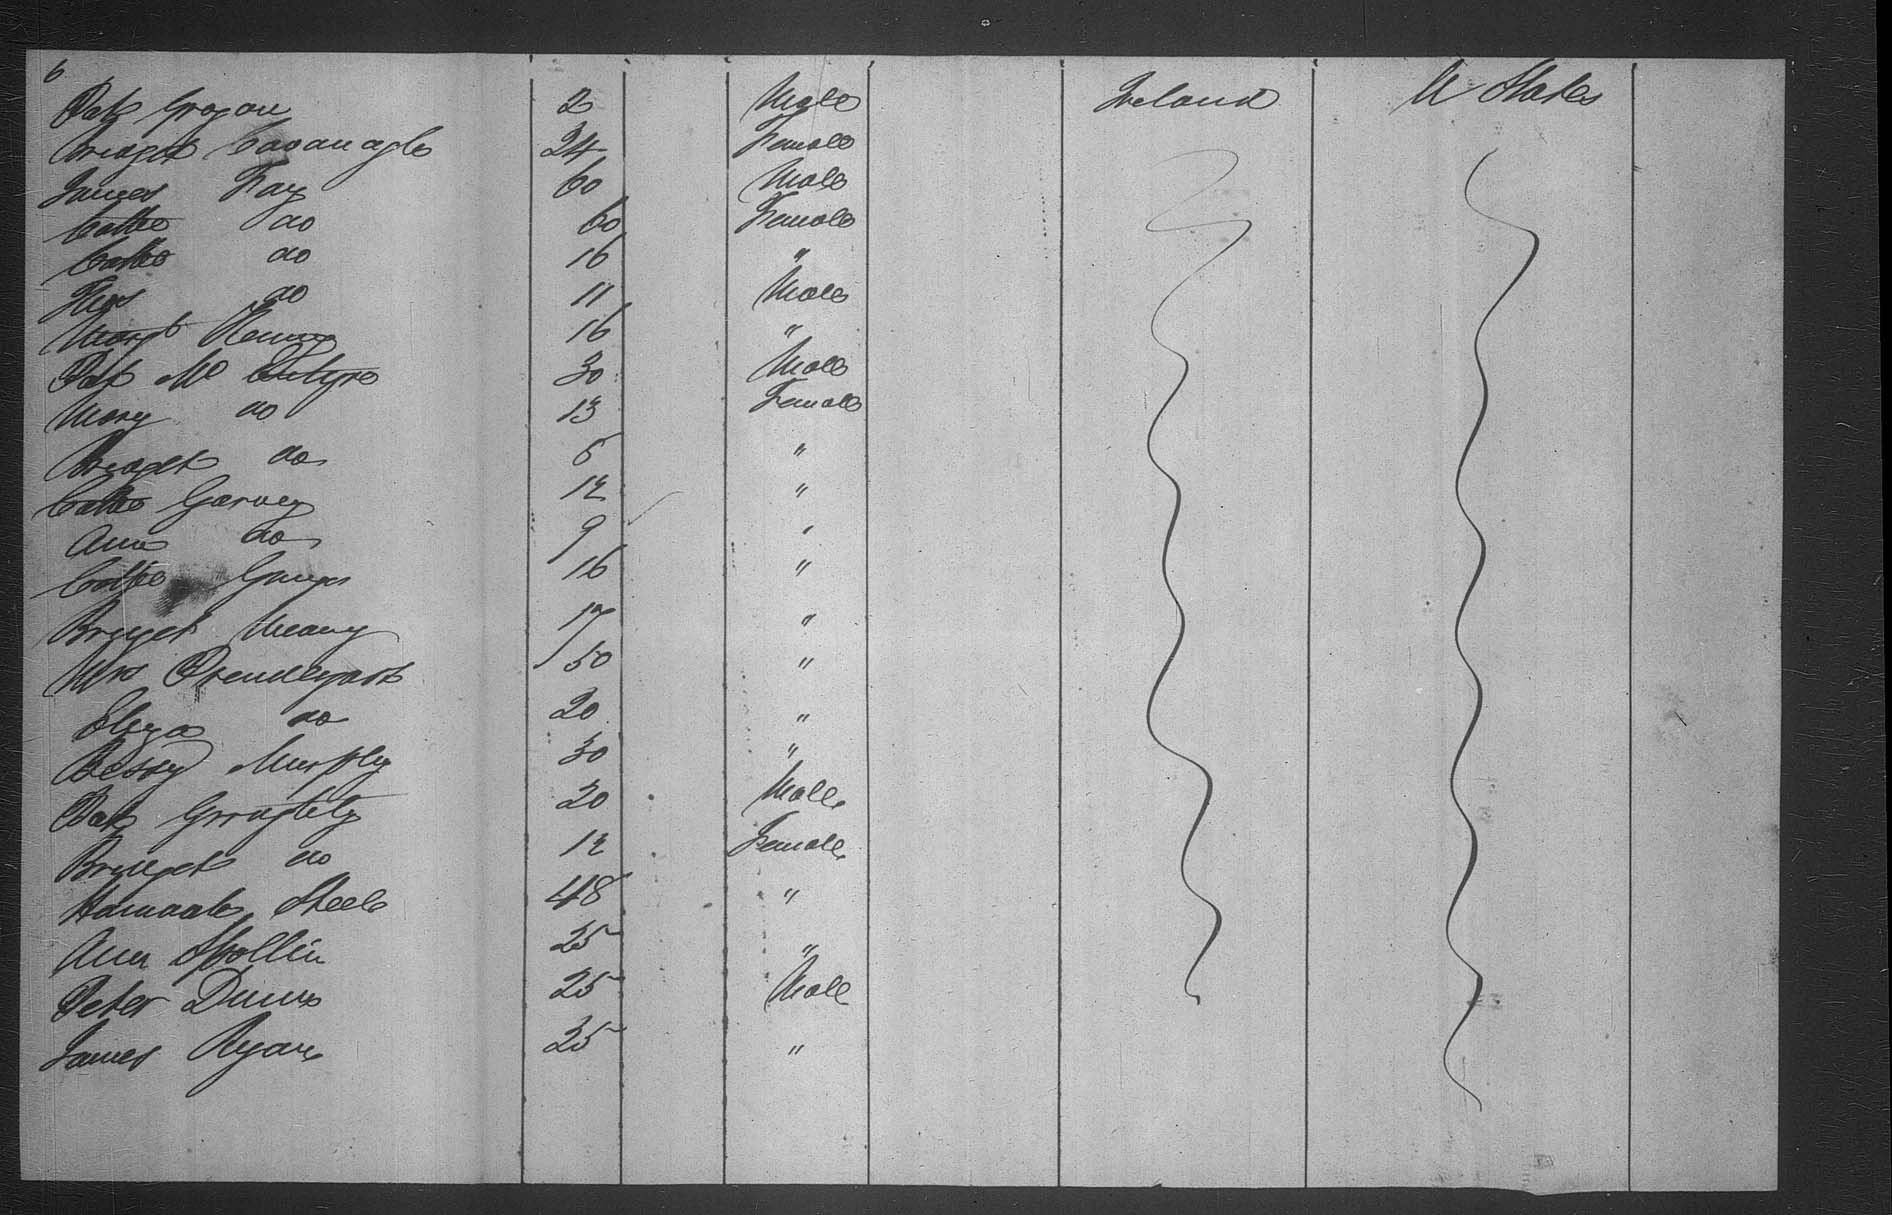 6
Pat Grogan 2 Male Ireland U States
Bridget Cavanagh 24 Female
James Fay 60 Male
Cathe do 60 Female
Cathe do 16 "
Thos do 11 Male
Margt 16 "
Pat Mc Intyre 30 Male
Mary do 13 Female
Bridget do 5 "
Cathe Garvey 12 "
Ann do 9 "
Cathe 16 "
Bridget Meany 17 "
Mrs Prendergast 50 "
Eliza do 20 "
Bessy Murphy 30 "
Pat 20 Male
Bridget do 12 Female
Hannah Steele 48 "
Ann Spollin 25 "
Peter Dunn 25 Male
James Ryan 25 "